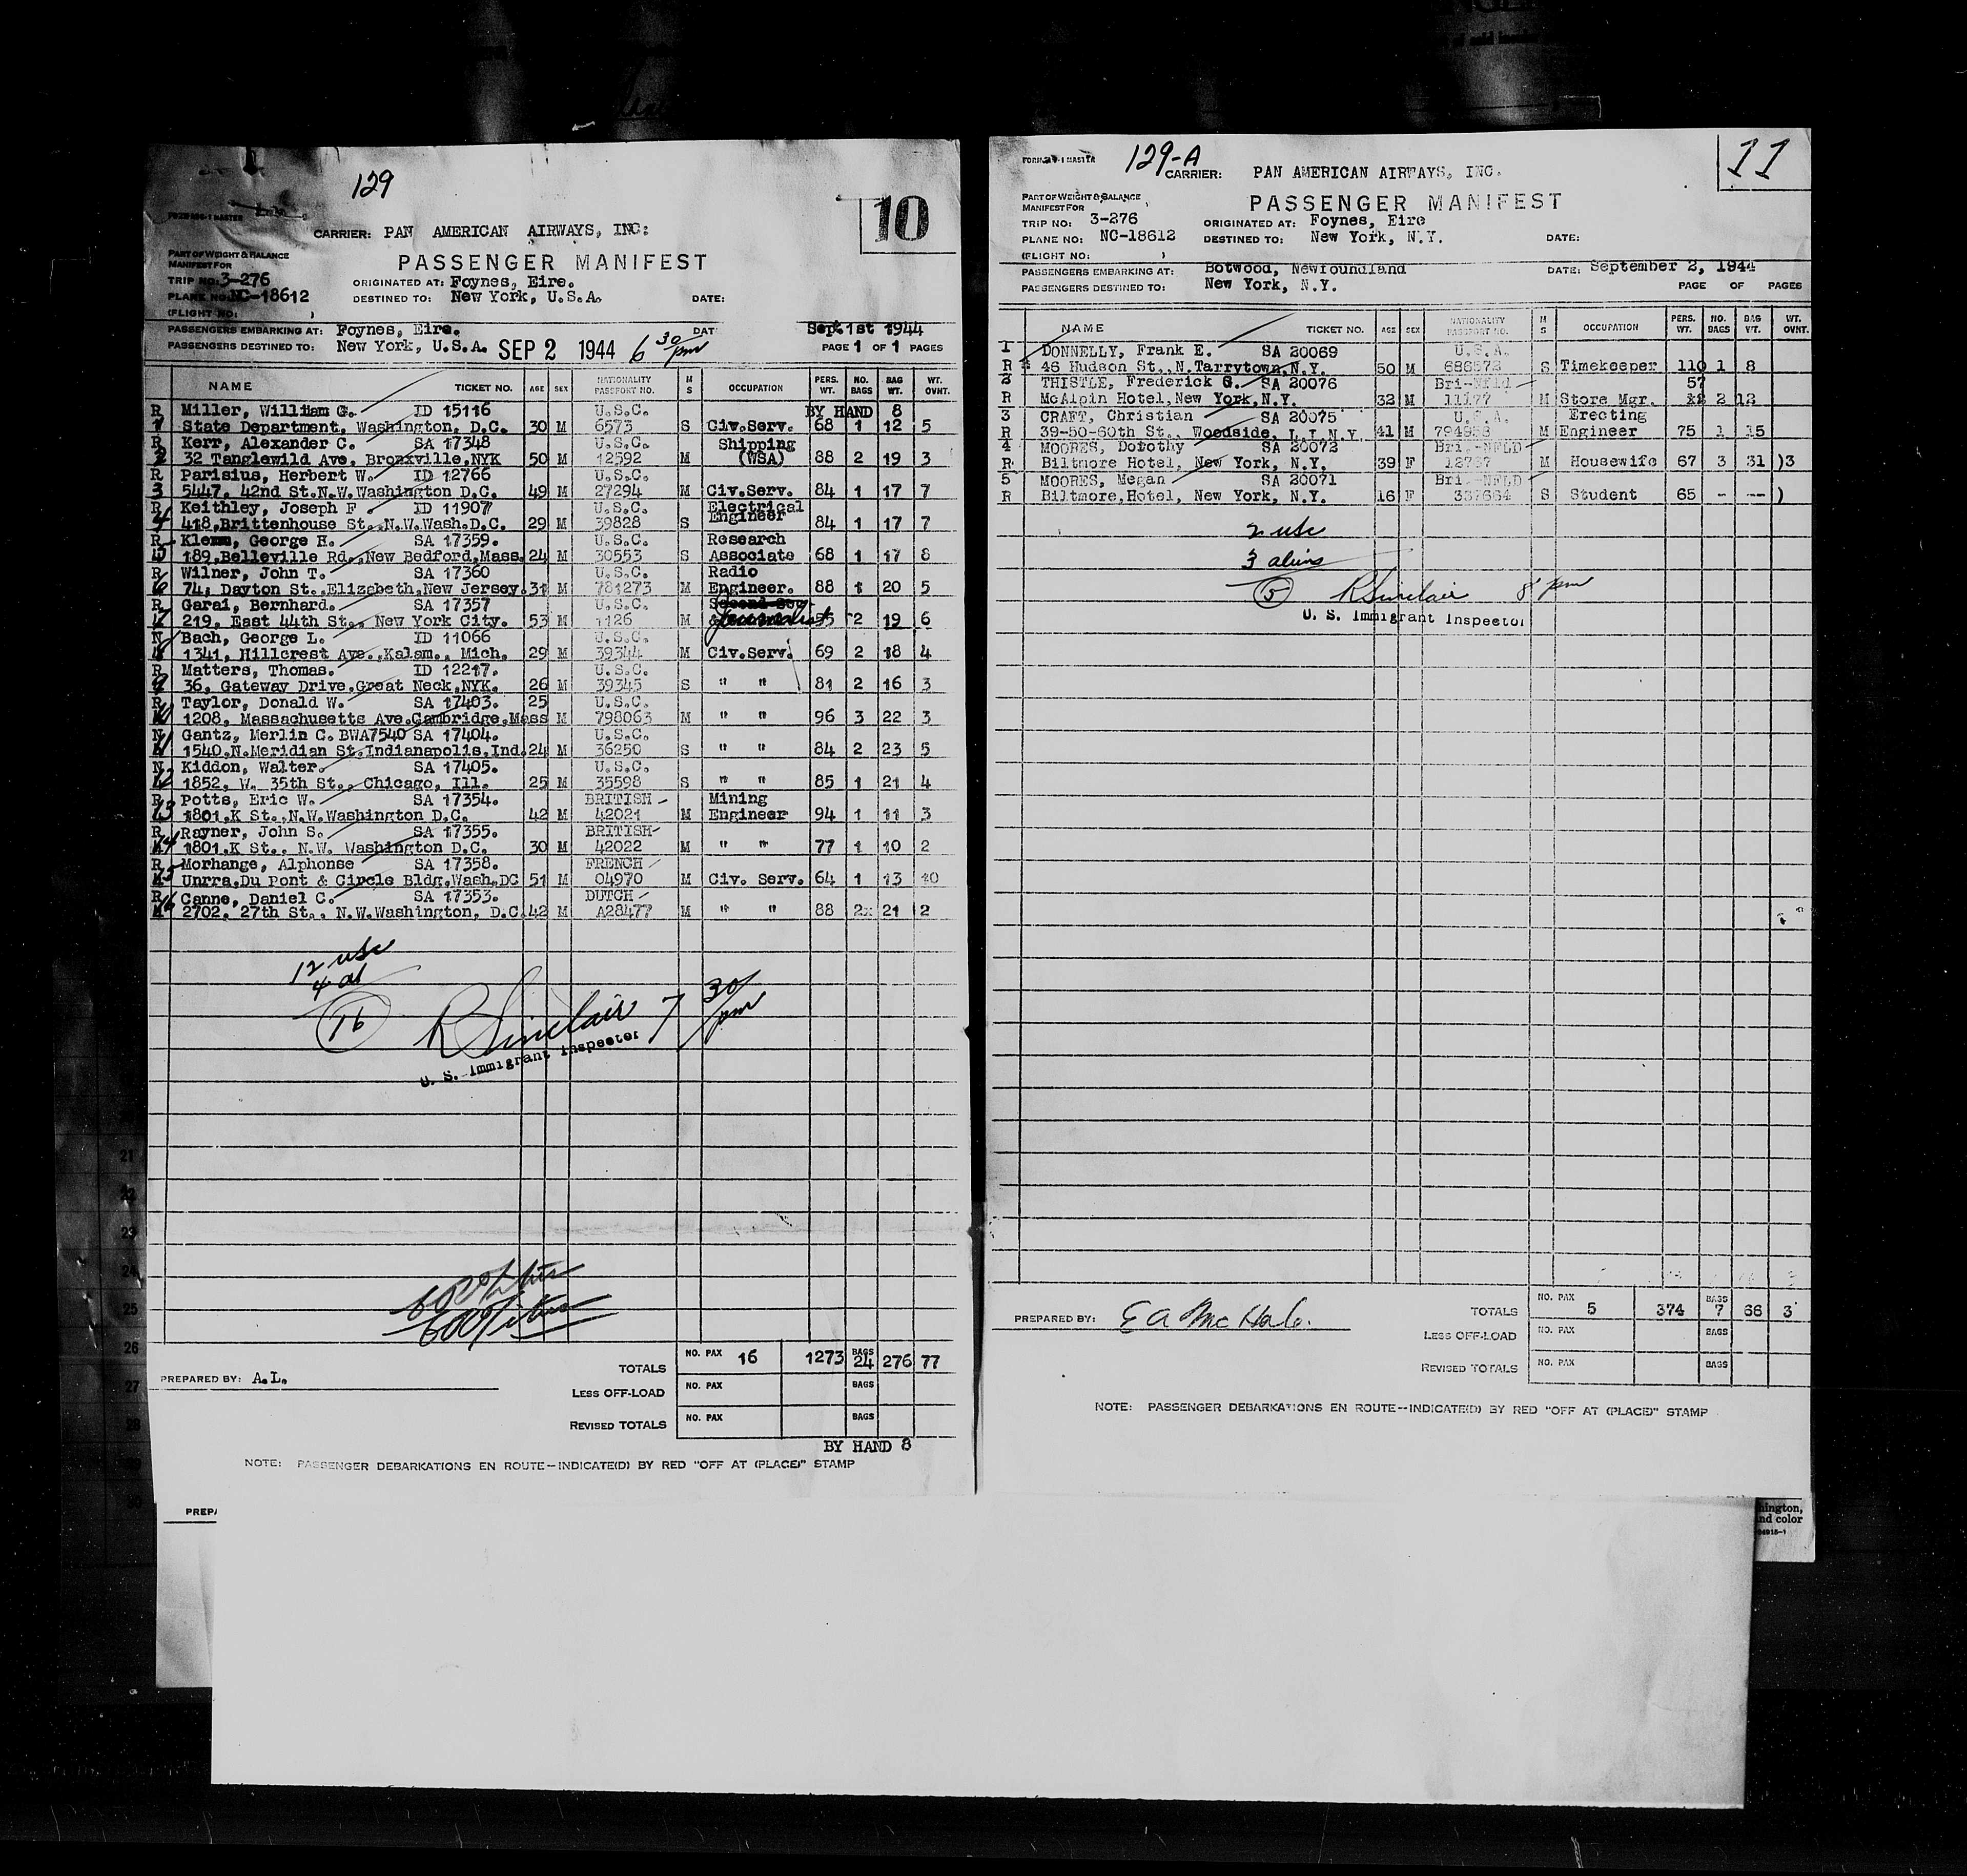 129
10
FORM 
CARRIER: PAN AMERICAN AIRWAYS, INC:
PART OF WEIGHT & BALANCE
MANIFEST FOR
PASSENGER MANIFEST
TRIP NO: 3-276 ORIGINATED AT: Foynes, Eire.
PLANE NO: NC-18612 DESTINED TO: New York, U.S.A. DATE:
(FLIGHT NO: )
PASSENGERS EMBARKING AT: Foynes, Eire. DAT Sept 1st 1944
PASSENGERS DESTINED TO: New York, U.S.A. SEP 2 1944 6 30/pm PAGE 1 OF 1 PAGES
NAME TICKET NO. AGE SEX NATIONALITY PASSPORT NO. M S OCCUPATION PERS. WT. NO. BAGS BAG WT. WT. OVHT.
R Miller, William G. ID 15116 U.S.C. BY HAND 8
1 State Department, Washington, D.C. 30 M 6573 S Civ.Serv. 68 1 12 5
R Kerr, Alexander C. SA 17348 U.S.C. Shipping
2 32 Tanglewild Ave, Bronxville,NYK 50 M 12592 M (WSA) 88 2 19 3
R Parisius, Herbert W. ID 12766 U.S.C.
3 5447, 42nd St.N.W.Washington D.C. 49 M 27294 M Civ.Serv. 84 1 17 7
R Keithley, Joseph F. ID 11907 U.S.C. Electrical
4 418,Brittenhouse St.,N.W.Wash.D.C. 29 M 39828 S Engineer 84 1 17 7
R Klemm, George H. SA 17359. U.S.C. Research
5 189,Belleville Rd.,New Bedford,Mass. 24 M 30553 S Associate 68 1 17 8
R Wilner, John T. SA 17360 U.S.C. Radio
6 74, Dayton St.,Elizabeth,New Jersey. 31 M 781273 M Engineer. 88 1 20 5
R Garai, Bernhard. SA 17357 U.S.C.
7 219, East 44th St., New York City. 53 M 1126 M Journalist 55 2 19 6
N Bach, George L. ID 11066 U.S.C.
8 1341, Hillcrest Ave.,Kalam., Mich. 29 M 39344 M Civ.Serv. 69 2 18 4
R Matters, Thomas. ID 12217. U.S.C.
9 36, Gateway Drive,Great Neck,NYK. 26 M 39345 S " " 81 2 16 3
R Taylor, Donald W. SA 17403. 25 U.S.C.
10 1208, Massachusetts Ave.Cambridge,Mass M 798063 M " " 96 3 22 3
N Gantz, Merlin C. BWA7540 SA 17404. U.S.C.
11 1540,N.Meridian St.Indianapolis,Ind. 24 M 36250 S " " 84 2 23 5
N Kiddon, Walter. SA 17405. U.S.C.
12 1852, W. 35th St., Chicago, Ill. 25 M 35598 S " " 85 1 21 4
R Potts, Eric W. SA 17354. BRITISH Mining
13 1801,K St.,N.W.Washington D.C. 42 M 42021 M Engineer 94 1 11 3
R Rayner, John S. SA 17355. BRITISH
14 1801,K St., N.W. Washington D.C. 30 M 42022 M " " 77 1 10 2
R Morhange, Alphonse SA 17358. FRENCH
15 Unrra,Du Pont & Circle Bldg,Wash,DC 51 M 04970 M Civ. Serv. 64 1 13 10
R Canne, Daniel C. SA 17353. DUTCH
16 2702, 27th St., N.W.Washington, D.C. 42 M A28477 M " " 88 2x 21 2
12 usc
4 al
16
R Sinclair 7 30/pm
U. S. Immigrant Inspector
TOTALS NO. PAX 16 1273 BAGS 24 276 77
PREPARED BY: A.L.
LESS OFF-LOAD NO. PAX BAGS
REVISED TOTALS NO. PAX BAGS
BY HAND 8
NOTE: PASSENGER DEBARKATIONS EN ROUTE—INDICATE(D) BY RED "OFF AT (PLACE)" STAMP
PREPA
129-A
11
CARRIER: PAN AMERICAN AIRWAYS, INC.
PART OF WEIGHT & BALANCE
MANIFEST FOR
PASSENGER MANIFEST
TRIP NO: 3-276 ORIGINATED AT: Foynes, Eire
PLANE NO: NC-18612 DESTINED TO: New York, N.Y. DATE:
(FLIGHT NO: )
PASSENGERS EMBARKING AT: Botwood, Newfoundland DATE: September 2, 1944
PASSENGERS DESTINED TO: New York, N.Y. PAGE OF PAGES
NAME TICKET NO. AGE SEX NATIONALITY PASSPORT NO. M S OCCUPATION PERS. WT. NO. BAGS BAG WT. WT. OVHT.
1 DONNELLY, Frank E. SA 20069 U.S.A.
R 46 Hudson St.,N.Tarrytown,N.Y. 50 M 686572 S Timekeeper 110 1 8
2 THISTLE, Frederick G. SA 20076 Bri-Nfld 57
R McAlpin Hotel,New York,N.Y. 32 M 11177 M Store Mgr. 2 12
3 CRAFT, Christian SA 20075 U.S.A. Erecting
R 39-50-60th St., Woodside, L.I.N.Y. 41 M 794958 M Engineer 75 1 15
4 MOORES, Dorothy SA 20072 Bri.-NFLD
R Biltmore Hotel, New York, N.Y. 39 F 12737 M Housewife 67 3 31 )3
5 MOORES, Megan SA 20071 Bri.-NFLD
R Biltmore,Hotel, New York, N.Y. 16 F 337664 S Student 65 - -- )
2 usc
3 aliens
5 R Sinclair 8 pm
U. S. Immigrant Inspector
TOTALS NO. PAX 5 374 BAGS 7 66 3
PREPARED BY: E A McHale.
LESS OFF-LOAD NO. PAX BAGS
REVISED TOTALS NO. PAX BAGS
NOTE: PASSENGER DEBARKATIONS EN ROUTE—INDICATE(D) BY RED "OFF AT (PLACE)" STAMP
hington,
nd color
21
22
23
24
25
26
27
28